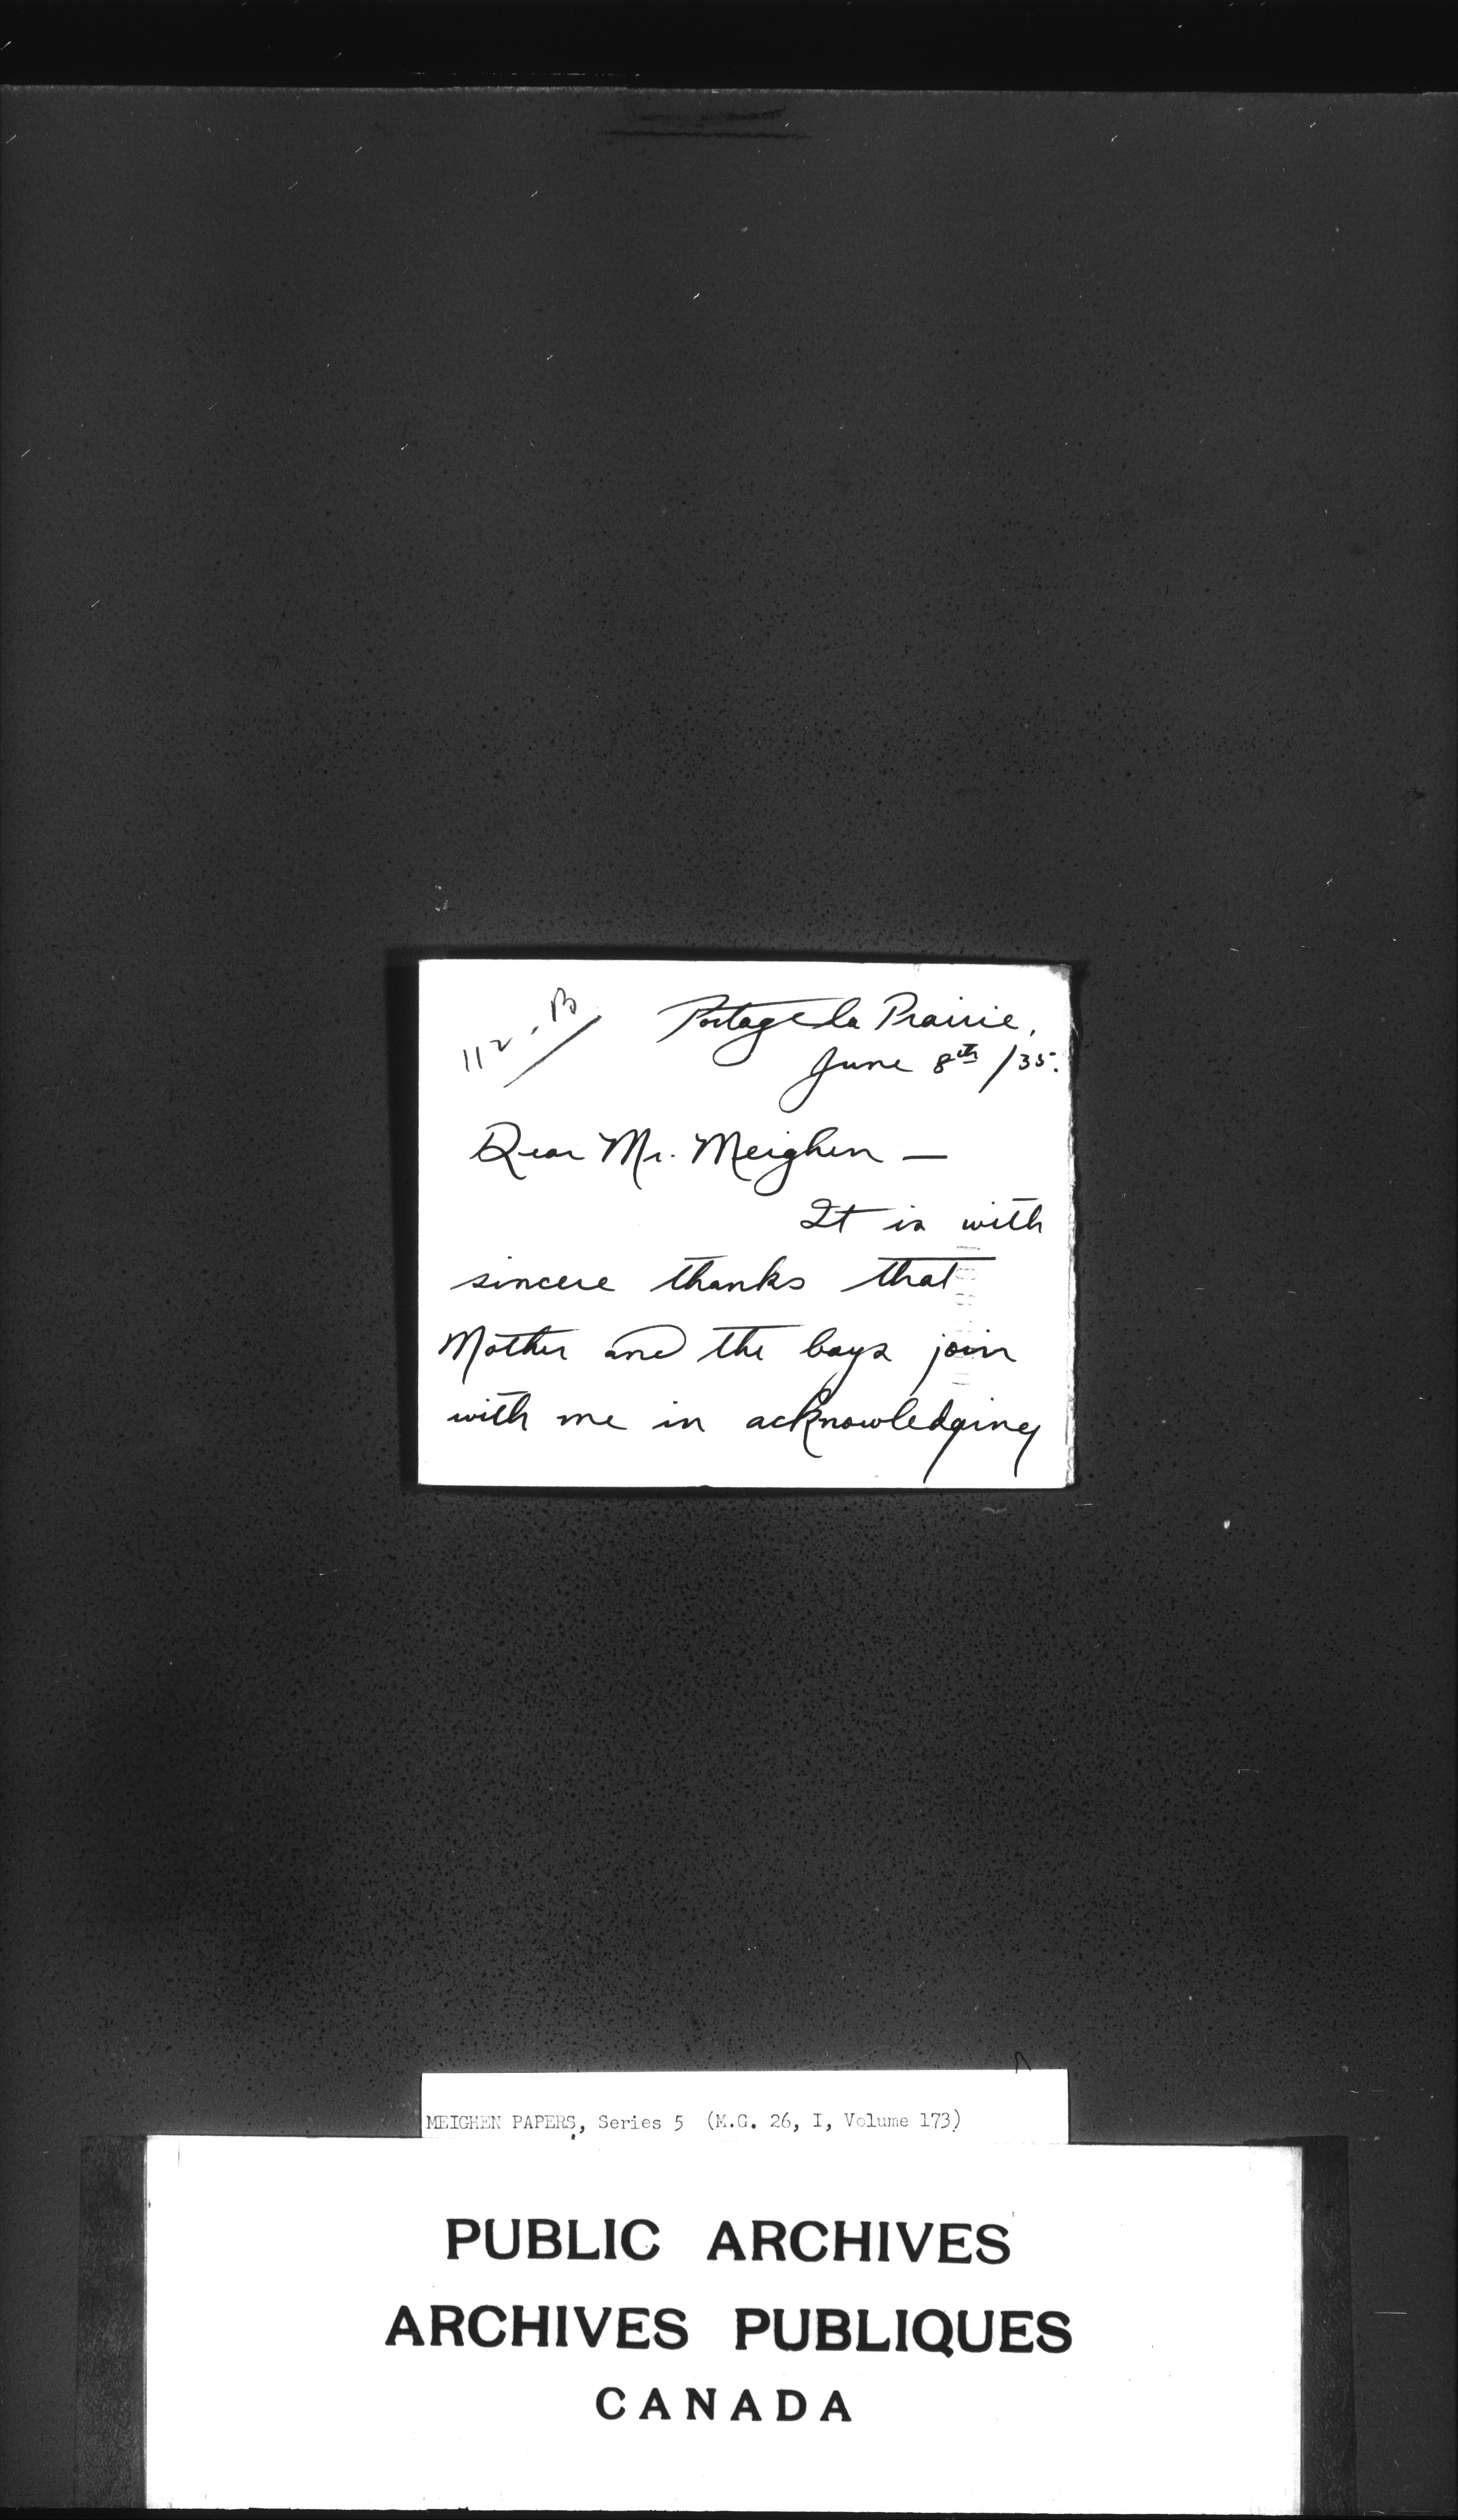 112-B
Portage la Prairie,
June 8th /35.
Dear Mr. Meighen —
It is with
sincere thanks that
Mother and the boys join
with me in acknowledging
MEIGHEN PAPERS, Series 5 (M.G. 26, I, Volume 173)
PUBLIC ARCHIVES
ARCHIVES PUBLIQUES
CANADA